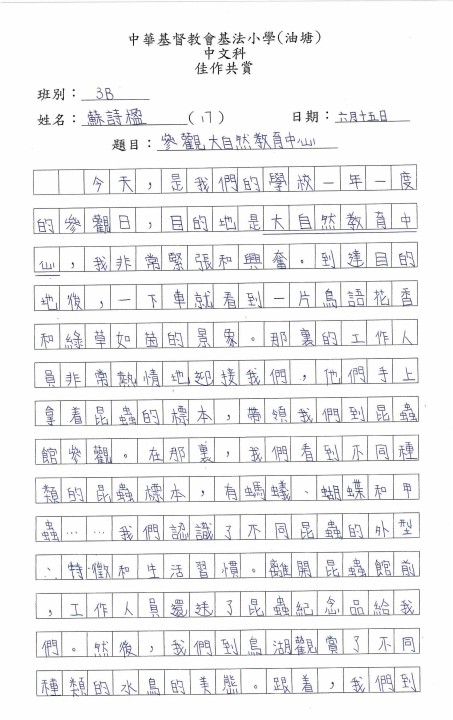 中華基督教會基法小學(油塘)
中文科
佳作共賞
班別： 3B
姓名： 蘇詩楹 (17) 日期： 六月十五日
題目： 參觀大自然教育中心
今天，是我們的學校一年一度
的參觀日，目的地是大自然教育中
心，我非常緊張和興奮。到達目的
地後，一下車就看到一片鳥語花香
和綠草如茵的景象。那裏的工作人
員非常熱情地迎接我們，他們手上
拿着昆蟲的標本，帶領我們到昆蟲
館參觀。在那裏，我們看到不同種
類的昆蟲標本，有螞蟻、蝴蝶和甲
蟲……我們認識了不同昆蟲的外型
、特徵和生活習慣。離開昆蟲館前
，工作人員還送了昆蟲紀念品給我
們。然後，我們到鳥湖觀賞了不同
種類的水鳥的美態。跟着，我們到